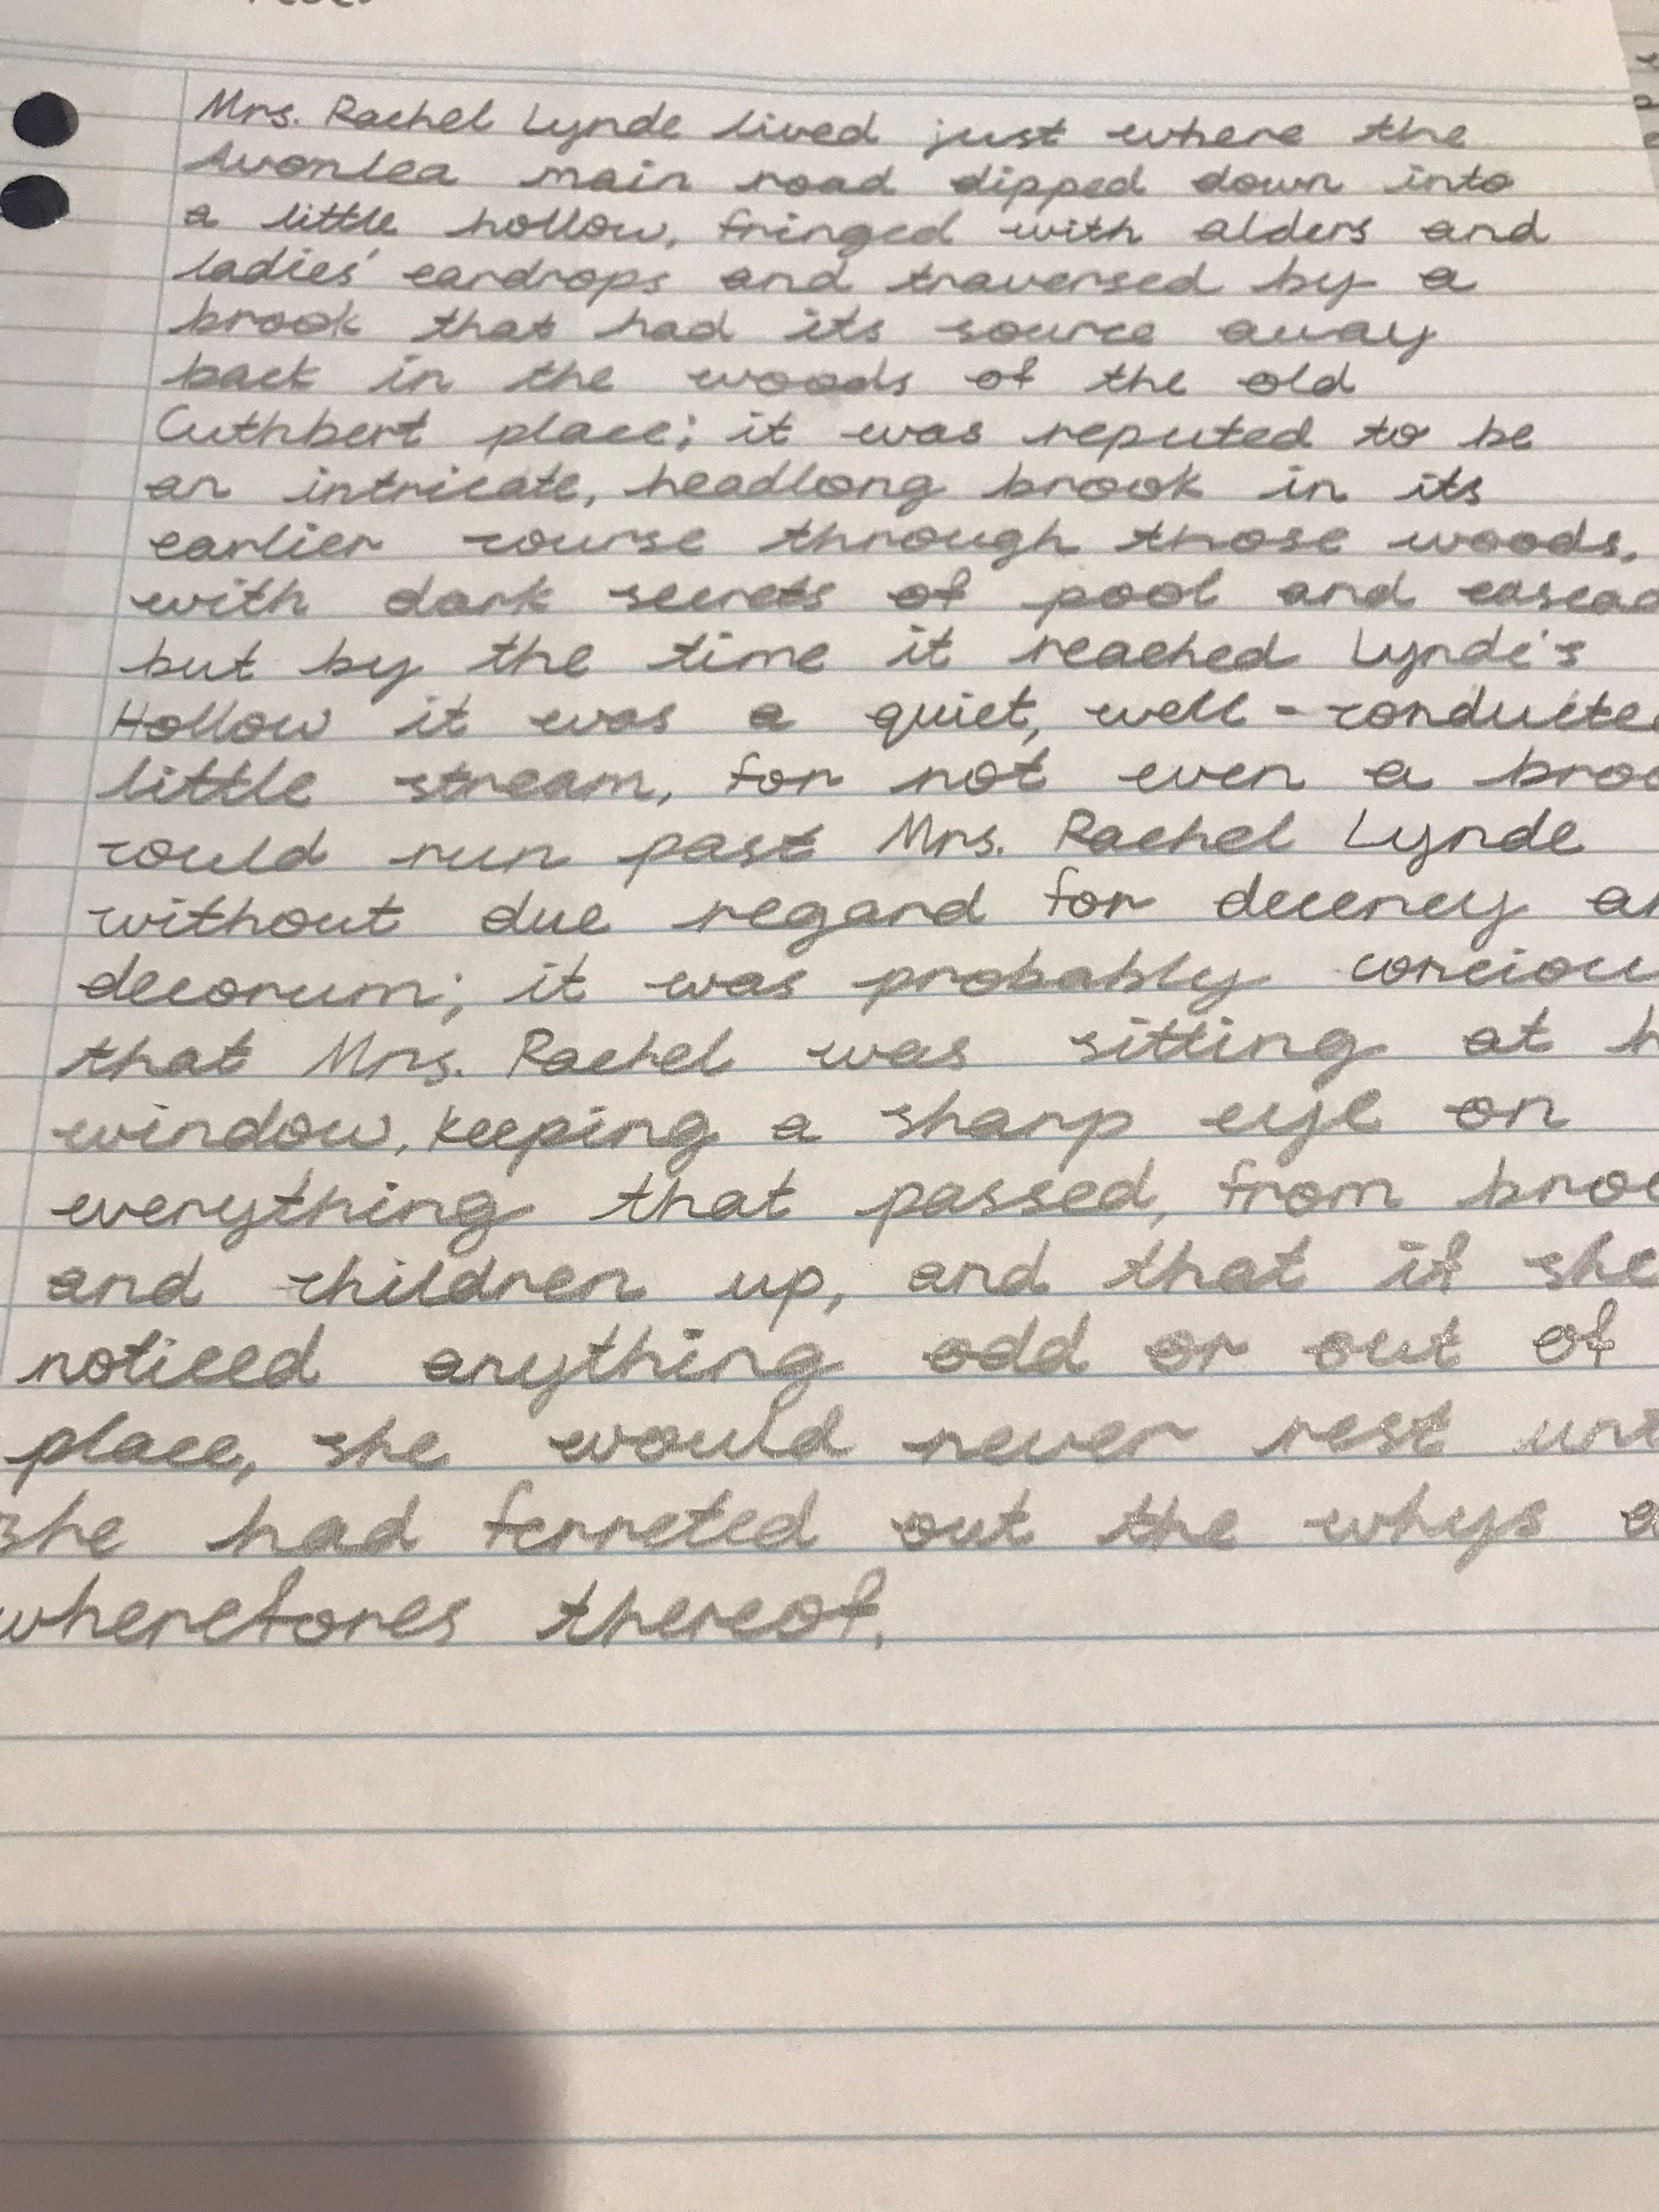 Mrs. Rachel Lynde lived just where the
Avonlea main road dipped down into
a little hollow, fringed with alders and
ladies' eardrops and traversed by a
brook that had its source away
back in the woods of the old
Cuthbert place; it was reputed to be
an intricate, headlong brook in its
earlier course through those woods,
with dark secrets of pool and cascad
but by the time it reached Lynde's
Hollow it was a quiet, well-conducte
little stream, for not even a broo
could run past Mrs. Rachel Lynde
without due regard for decency an
decorum; it was probably conciou
that Mrs. Rachel was sitting at h
window, keeping a sharp eye on
everything that passed, from broo
and children up, and that if she
noticed anything odd or out of
place, she would never rest unt
she had ferreted out the whys a
wherefores thereof.